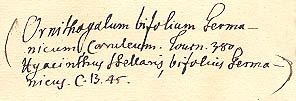 (Ornithogalum bifolium Germa-
nicum Cæruleum. Tourn. 380
Hyacinthus Stellaris, bifolius Germa-
nicus. C. B. 45.)